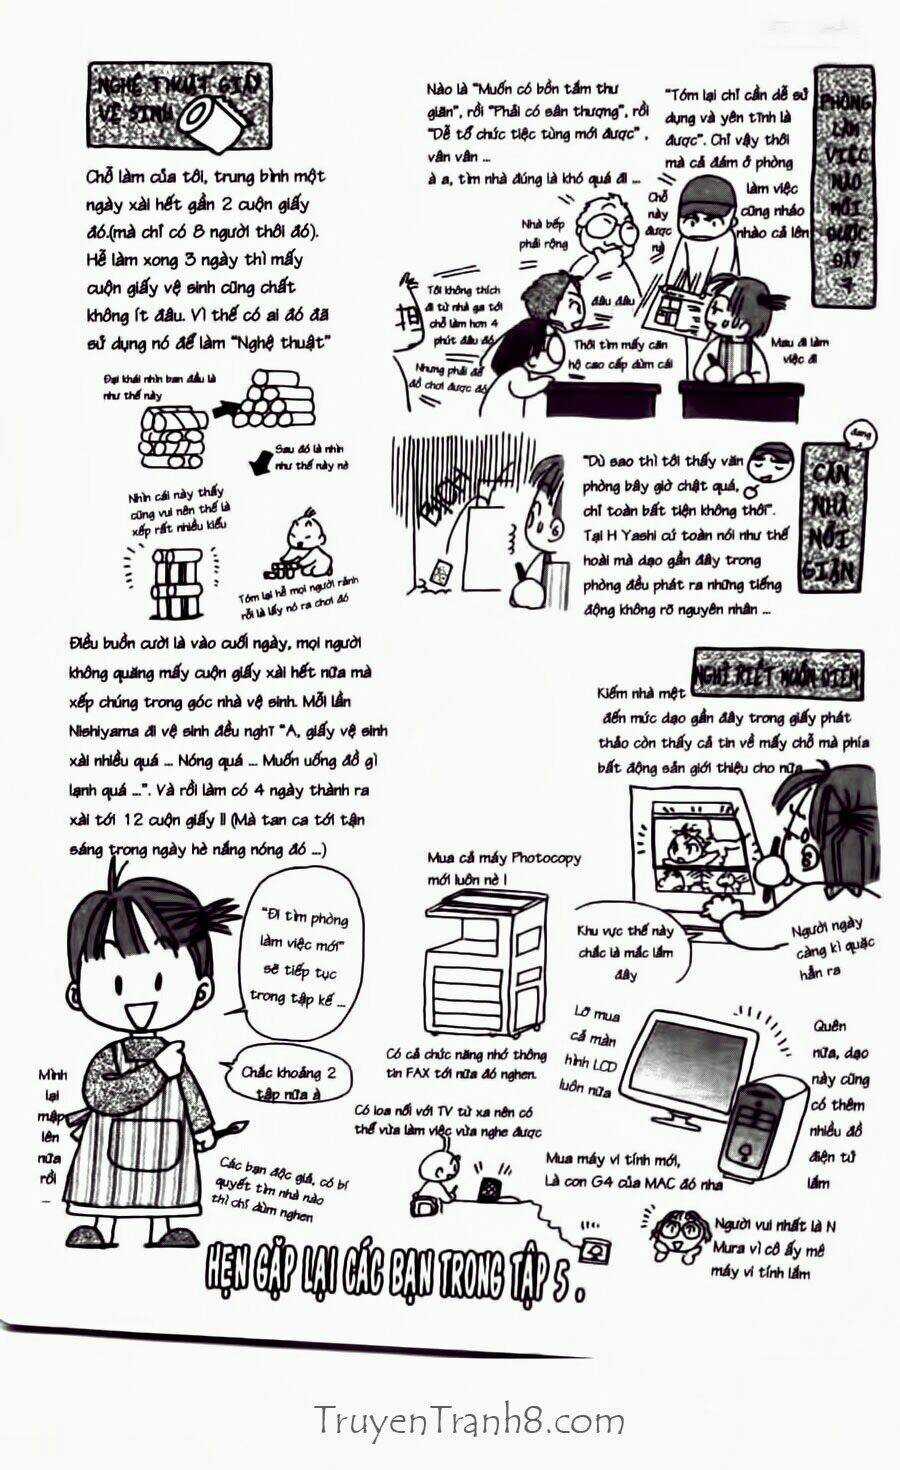 PHÒNG
LÀM
VIỆC
NÀO
MỚI
ĐƯỢC
ĐÂY
?
"Tóm lại chỉ cần dễ sử
dụng và yên tĩnh là
được". Chỉ vậy thôi
mà cả đám ở phòng
làm việc
cũng nháo
nhào cả lên
Nào là "Muốn có bồn tắm thư
giãn", rồi "Phải có sân thượng", rồi
"Dễ tổ chức tiệc tùng mới được" ,
vân vân ...
à a, tìm nhà đúng là khó quá đi ...
Chỗ
này
được
nè
Nhà bếp
phải rộng
Tôi không thích
đi từ nhà ga tới
chỗ làm hơn 4
phút đâu đó
đâu đâu
Nhưng phải để
đồ chơi được đó
Thôi tìm mấy căn
hộ cao cấp dùm cái
Mau đi làm
việc đi
đang
CĂN
NHÀ
NỔI
GIẬN
"Dù sao thì tôi thấy văn
phòng bây giờ chật quá,
chỉ toàn bất tiện không thôi".
Tại H Yashi cứ toàn nói như thế
hoài mà dạo gần đây trong
phòng đều phát ra những tiếng
động không rõ nguyên nhân ...
NGHĨ RIẾT MUỐN ĐIÊN
Kiếm nhà mệt
đến mức dạo gần đây trong giấy phát
thảo còn thấy cả tin về mấy chỗ mà phía
bất động sản giới thiệu cho nữa
Khu vực thế này
chắc là mắc lắm
đây
Người ngày
càng kì quặc
hẳn ra
Quên
nữa, dạo
này cũng
có thêm
nhiều đồ
điện tử
lắm
Lỡ mua
cả màn
hình LCD
luôn nữa
Mua cả máy Photocopy
mới luôn nè !
Có cả chức năng nhớ thông
tin FAX tới nữa đó nghen.
Có loa nối với TV từ xa nên có
thể vừa làm việc vừa nghe được
Mua máy vi tính mới,
Là con G4 của MAC đó nha
Người vui nhất là N
Mura vì cô ấy mê
máy vi tính lắm
NGHỆ THUẬT GIẤY
VỆ SINH
Chỗ làm của tôi, trung bình một
ngày xài hết gần 2 cuộn giấy
đó.(mà chỉ có 8 người thôi đó).
Hễ làm xong 3 ngày thì mấy
cuộn giấy vệ sinh cũng chất
không ít đâu. Vì thế có ai đó đã
sử dụng nó để làm "Nghệ thuật"
Đại khái nhìn ban đầu là
như thế này
Sau đó là nhìn
như thế này nè
Nhìn cái này thấy
cũng vui nên thế là
xếp rất nhiều kiểu
Tóm lại hễ mọi người rảnh
rỗi là lấy nó ra chơi đó
Điều buồn cười là vào cuối ngày, mọi người
không quăng mấy cuộn giấy xài hết nữa mà
xếp chúng trong góc nhà vệ sinh. Mỗi lần
Nishiyama đi vệ sinh đều nghĩ "A, giấy vệ sinh
xài nhiều quá ... Nóng quá ... Muốn uống đồ gì
lạnh quá ...". Và rồi làm có 4 ngày thành ra
xài tới 12 cuộn giấy !! (Mà tan ca tới tận
sáng trong ngày hè nắng nóng đó ...)
"Đi tìm phòng
làm việc mới"
sẽ tiếp tục
trong tập kế ...
Chắc khoảng 2
tập nữa à
Mình
lại
mập
lên
nữa
rồi
...
Các bạn độc giả, có bí
quyết tìm nhà nào
thì chỉ dùm nghen
HẸN GẶP LẠI CÁC BẠN TRONG TẬP 5 .
TruyenTranh8.com